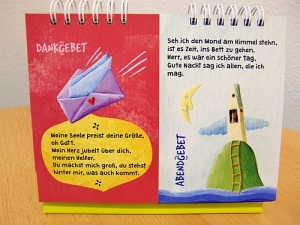 DANKGEBET
Meine Seele preist deine Größe,
oh Gott.
Mein Herz jubelt über dich,
meinen Helfer.
Du machst mich groß, du stehst
hinter mir, was auch kommt.
Seh ich den Mond am Himmel stehn,
ist es Zeit, ins Bett zu gehen.
Herr, es war ein schöner Tag,
Gute Nacht sag ich allen, die ich
mag.
ABENDGEBET